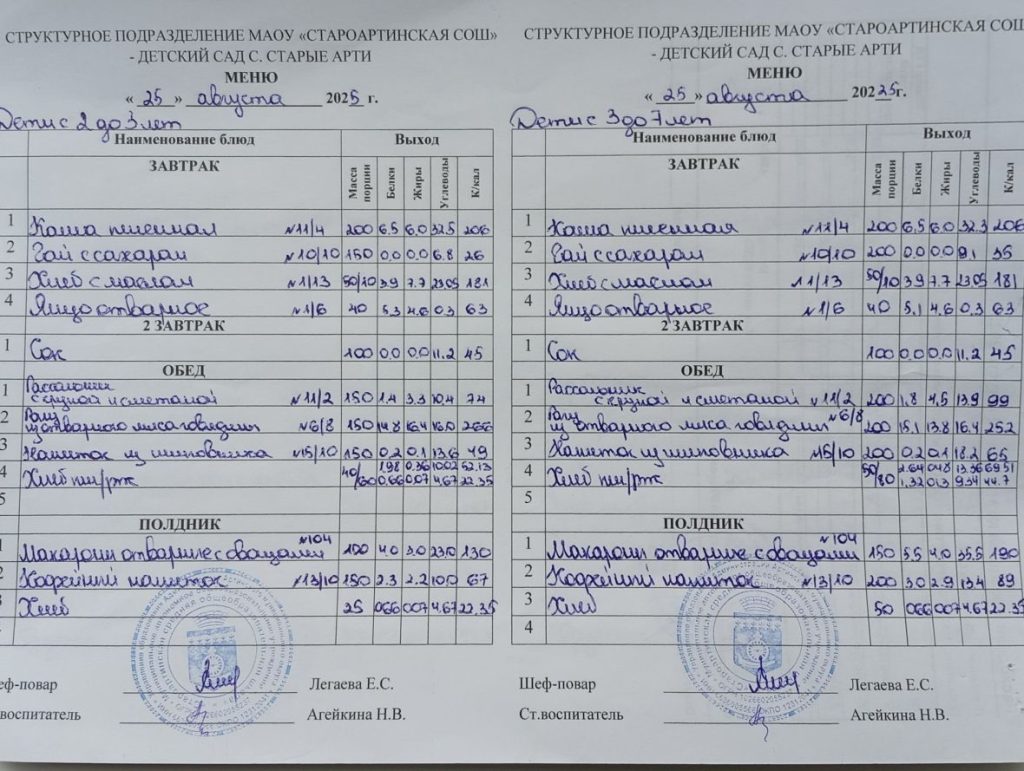 СТРУКТУРНОЕ ПОДРАЗДЕЛЕНИЕ МАОУ «СТАРОАРТИНСКАЯ СОШ»
- ДЕТСКИЙ САД С. СТАРЫЕ АРТИ
МЕНЮ
« 25 » августа 2025 г.
Дети с 2 до 3 лет
Наименование блюд Выход
ЗАВТРАК Масса порции Белки Жиры Углеводы К/кал
1 Каша пшенная №11/4 200 6.5 6.0 32.5 206
2 Чай с сахаром №10/10 150 0.0 0.0 6.8 26
3 Хлеб с маслом №1/13 50/10 3.9 7.7 23.05 181
4 Яйцо отварное №1/6 40 5.3 4.6 0.3 63
2 ЗАВТРАК
1 Сок 100 0.0 0.0 11.2 45
ОБЕД
1 Рассольник с крупой и сметаной №11/2 150 1.4 3.3 10.4 74
2 Рагу из отварного мяса говядины №6/8 150 14.8 16.4 16.0 266
3 Напиток из шиповника №15/10 150 0.2 0.1 13.6 49
4 Хлеб пш/рж 40/ 1.98 0.36 10.02 52.13
0.66 0.07 4.67 22.35
5
ПОЛДНИК
1 Макароны отварные с овощами №104 100 4.0 3.0 23.0 130
2 Кофейный напиток №13/10 150 2.3 2.2 10.0 67
3 Хлеб 25 0.66 0.07 4.67 22.35
4
еф-повар Легаева Е.С.
воспитатель Агейкина Н.В.
СТРУКТУРНОЕ ПОДРАЗДЕЛЕНИЕ МАОУ «СТАРОАРТИНСКАЯ СОШ
- ДЕТСКИЙ САД С. СТАРЫЕ АРТИ
МЕНЮ
« 25 » августа 20225г.
Дети с 3 до 7 лет
Наименование блюд Выход
ЗАВТРАК Масса порции Белки Жиры Углеводы К/кал
1 Каша пшенная №11/4 200 6.5 6.0 32.3 206
2 Чай с сахаром №10/10 200 0.0 0.0 9.1 35
3 Хлеб с маслом 11/13 50/10 3.9 7.7 23.05 181
4 Яйцо отварное №1/6 40 5.1 4.6 0.3 63
2 ЗАВТРАК
1 Сок 100 0.0 0.0 11.2 45
ОБЕД
1 Рассольник с крупой и сметаной №11/2 200 1.8 4.5 13.9 99
2 Рагу из отварного мяса говядины №6/8 200 15.1 13.8 16.4 252
3 Напиток из шиповника №15/10 200 0.2 0.1 18.2 65
4 Хлеб пш/рж 50/80 2.64 0.48 13.36 69.51
1.32 0.13 9.34 44.7
5
ПОЛДНИК
1 Макароны отварные с овощами №104 150 5.5 4.0 35.5 190
2 Кофейный напиток №13/10 200 3.0 2.9 13.4 89
3 Хлеб 50 0.66 0.07 4.67 22.35
4
Шеф-повар Легаева Е.С.
Ст.воспитатель Агейкина Н.В.